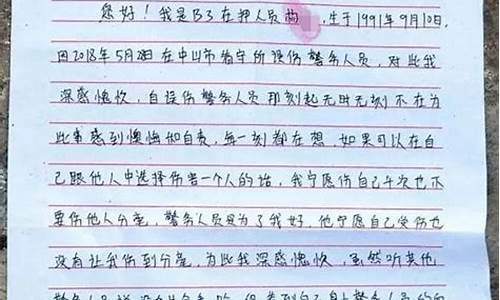 您好！我是B3在押人员曲 ，生于1991年9月10日，
因2018年5月28日在中山市看守所误伤警务人员，对此我
深感愧疚，自误伤警务人员那刻起无时无刻不在为
此事感到懊悔和自责，每一刻都在想，如果可以在自
己跟他人中选择伤害一个人的话，我宁愿伤自己千次也不
要伤他人分毫，警务人员是为了我好，他宁愿自己受伤也
没有让我伤到分毫，为此我深感愧疚，虽然听其他
警务人员说没有什么